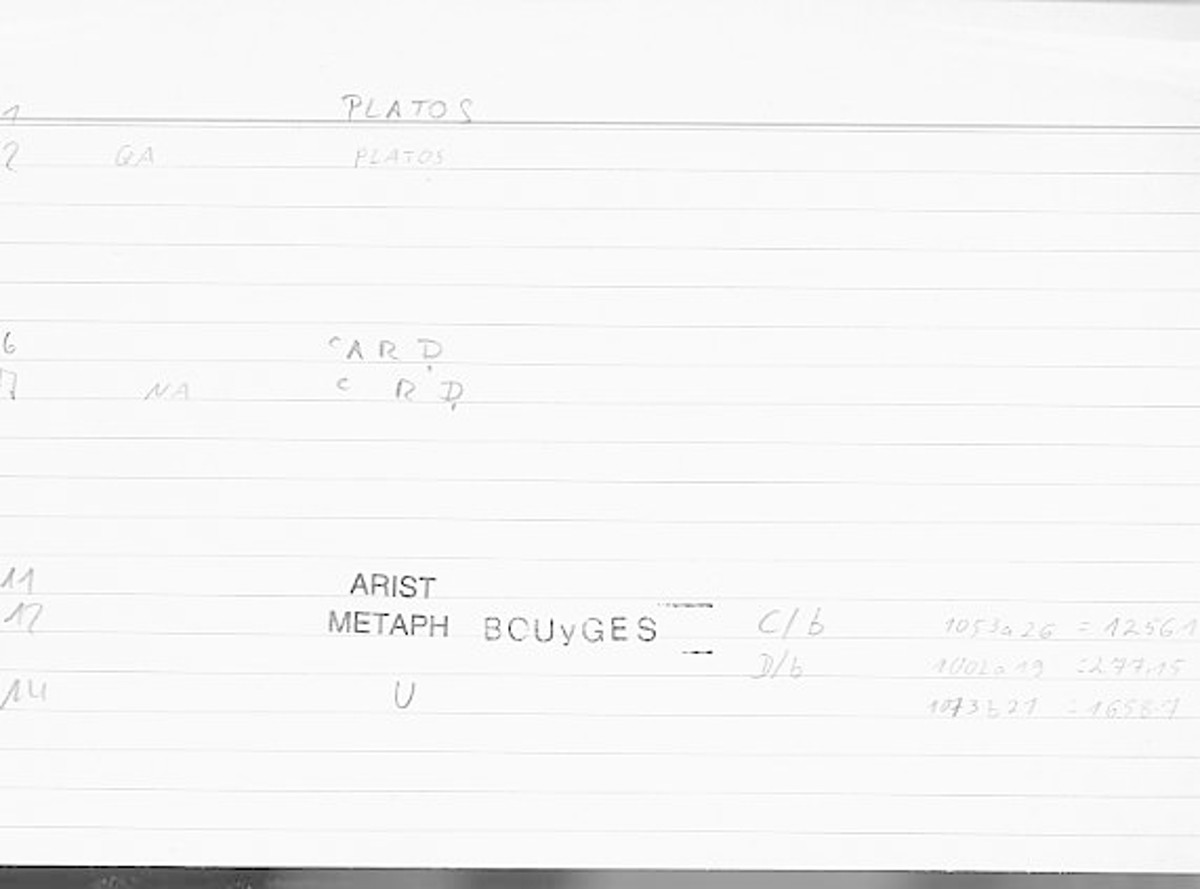 1 PLATOS
2 QA PLATOS
6 ʿA R Ḍ
17 NA ʿ R Ḍ
11 ARIST
12 METAPH BOUyGES C/b 1053a26 = 12561
D/b 1002a19 = 277,15
14 U 1073b21 = 16587